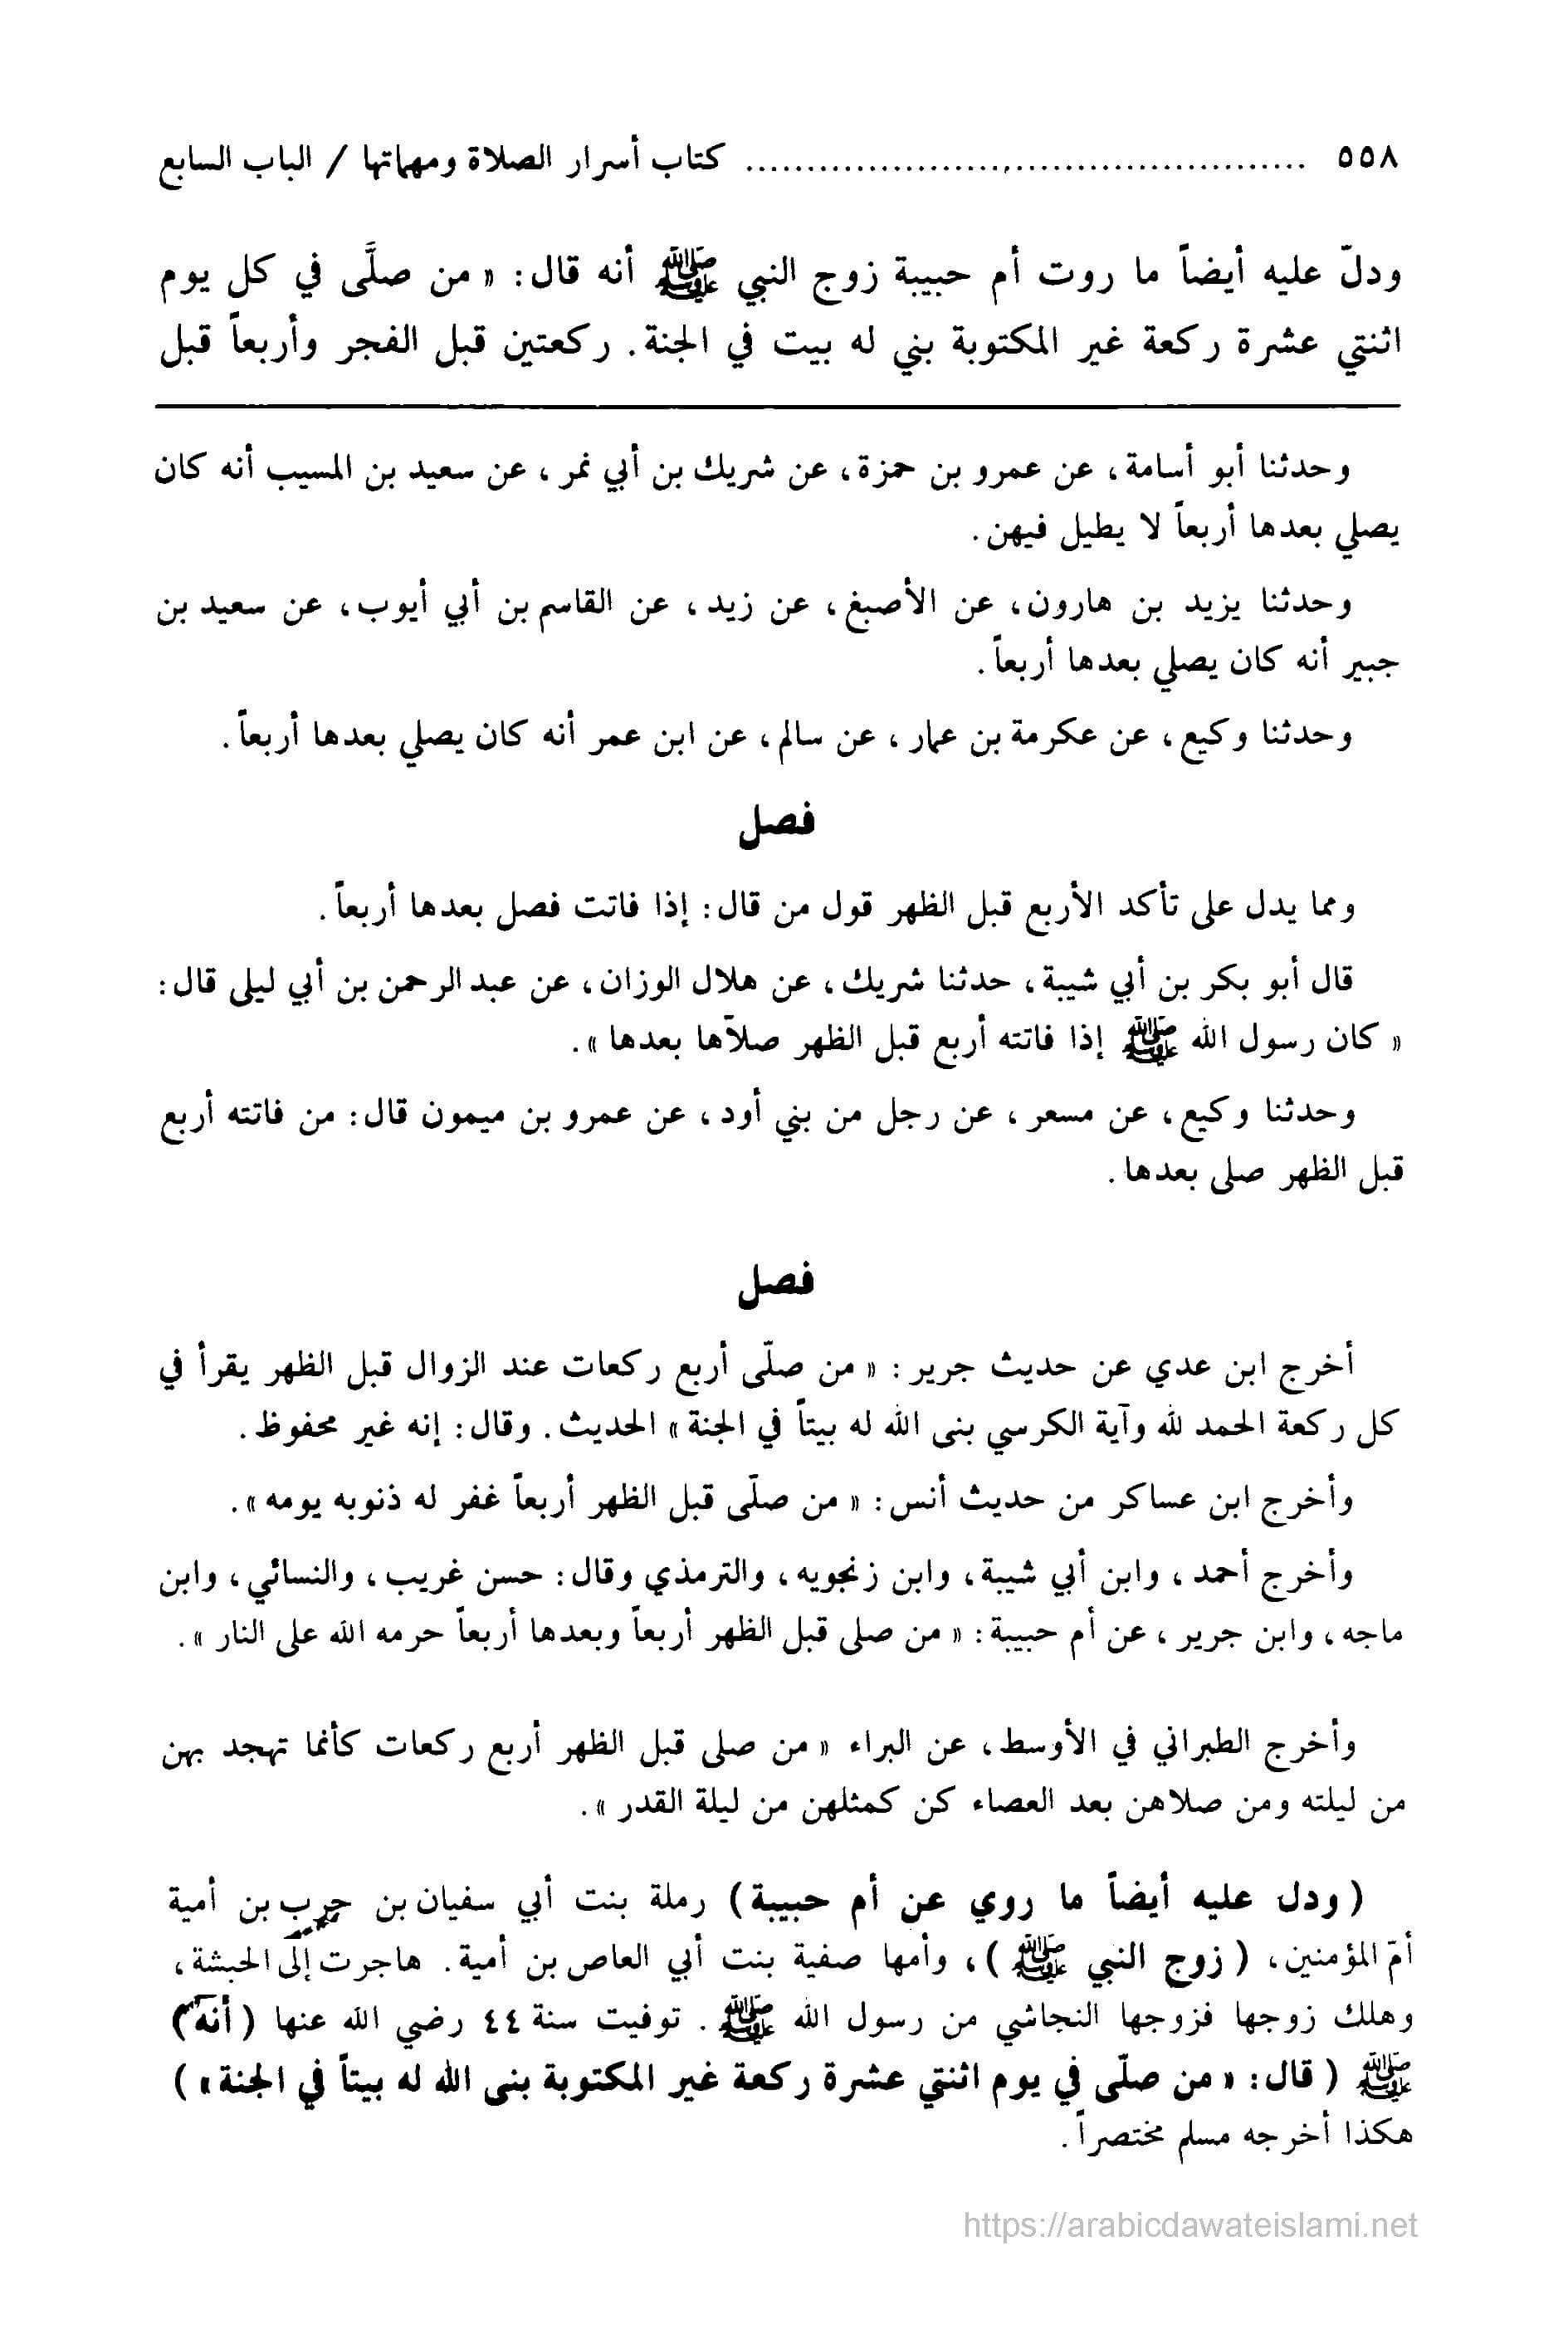 ٥٥٨ ............................................... كتاب أسرار الصلاة ومهماتها / الباب السابع
ودلّ عليه أيضاً ما روت أم حبيبة زوج النبي ﷺ أنه قال: « من صلَّى في كل يوم
اثنتي عشرة ركعة غير المكتوبة بني له بيت في الجنة. ركعتين قبل الفجر وأربعاً قبل
وحدثنا أبو أسامة، عن عمرو بن حمزة، عن شريك بن أبي نمر، عن سعيد بن المسيب أنه كان
يصلي بعدها أربعاً لا يطيل فيهن.
وحدثنا يزيد بن هارون، عن الأصبغ، عن زيد، عن القاسم بن أبي أيوب، عن سعيد بن
جبير أنه كان يصلي بعدها أربعاً.
وحدثنا وكيع، عن عكرمة بن عمار، عن سالم، عن ابن عمر أنه كان يصلي بعدها أربعاً.
فصل
ومما يدل على تأكد الأربع قبل الظهر قول من قال: إذا فاتت فصل بعدها أربعاً.
قال أبو بكر بن أبي شيبة، حدثنا شريك، عن هلال الوزان، عن عبد الرحمن بن أبي ليلى قال:
« كان رسول الله ﷺ إذا فاتته أربع قبل الظهر صلاّها بعدها ».
وحدثنا وكيع، عن مسعر، عن رجل من بني أود، عن عمرو بن ميمون قال: من فاتته أربع
قبل الظهر صلى بعدها.
فصل
أخرج ابن عدي عن حديث جرير: « من صلّى أربع ركعات عند الزوال قبل الظهر يقرأ في
كل ركعة الحمد لله وآية الكرسي بنى الله له بيتاً في الجنة » الحديث. وقال: إنه غير محفوظ.
وأخرج ابن عساكر من حديث أنس: « من صلّى قبل الظهر أربعاً غفر له ذنوبه يومه ».
وأخرج أحمد، وابن أبي شيبة، وابن زنجويه، والترمذي وقال: حسن غريب، والنسائي، وابن
ماجه، وابن جرير، عن أم حبيبة: « من صلى قبل الظهر أربعاً وبعدها أربعاً حرمه الله على النار ».
وأخرج الطبراني في الأوسط، عن البراء « من صلى قبل الظهر أربع ركعات كأنما تهجد بهن
من ليلته ومن صلاهن بعد العصاء كن كمثلهن من ليلة القدر ».
( ودل عليه أيضاً ما روي عن أم حبيبة ) رملة بنت أبي سفيان بن حرب بن أمية
أمّ المؤمنين، ( زوج النبي ﷺ )، وأمها صفية بنت أبي العاص بن أمية. هاجرت إلى الحبشة،
وهلك زوجها فزوجها النجاشي من رسول الله ﷺ. توفيت سنة ٤٤ رضي الله عنها ( أنه )
ﷺ ( قال: « من صلّى في يوم اثنتي عشرة ركعة غير المكتوبة بنى الله له بيتاً في الجنة » )
هكذا أخرجه مسلم مختصراً.
https://arabicdawateislami.net